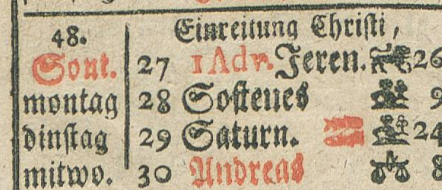 48. Einreitung Christi,
Sont. 27 1 Adv. Jeren. 26
montag 28 Sostenes 9
dinstag 29 Saturn. 24
mitwo. 30 Andreas 8